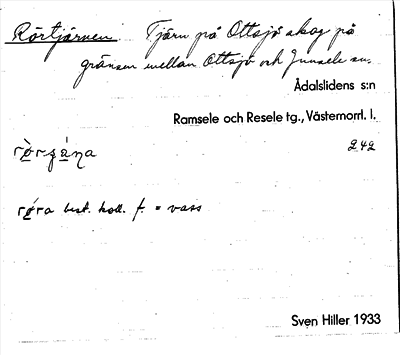 Rörtjärnen. Tjärn på Ottsjö skog på
gränsen mellan Ottsjö och Junsele sn.
Ådalslidens s:n
Ramsele och Resele tg., Västernorrl. l.
242
röra best. koll. f. = vass
Sven Hiller 1933